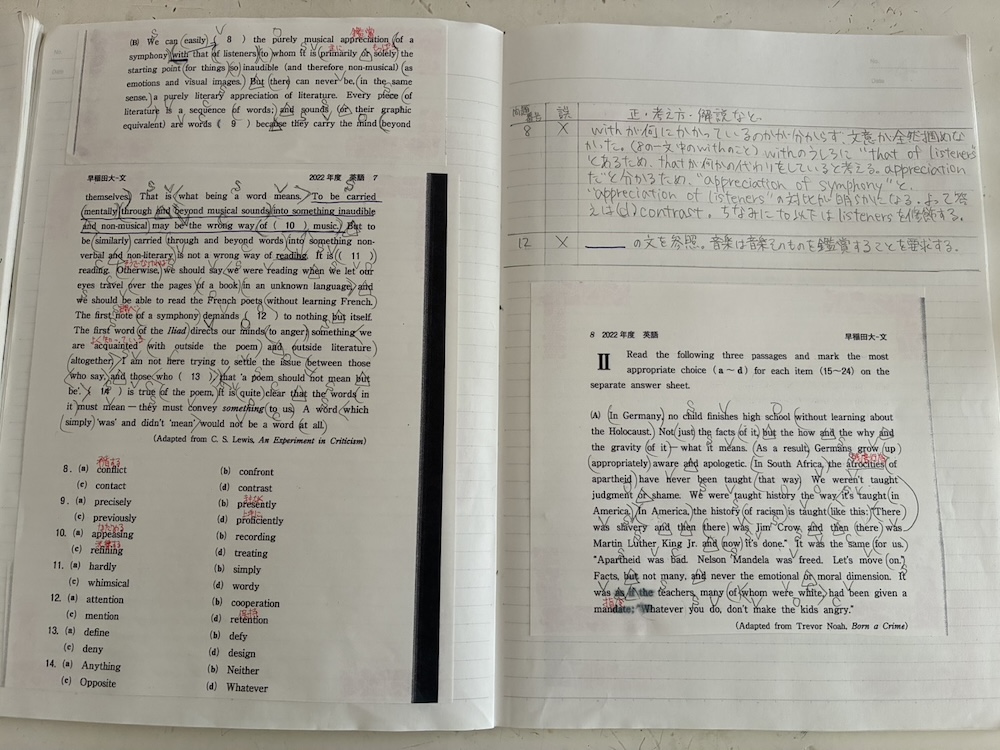 鑑賞
(B) We can easily ( 8 ) the purely musical appreciation of a
主に
symphony with that of listeners to whom it is primarily or solely the
starting point for things so inaudible (and therefore non-musical) as
emotions and visual images. But there can never be, in the same
sense, a purely literary appreciation of literature. Every piece of
literature is a sequence of words; and sounds (or their graphic
equivalent) are words ( 9 ) because they carry the mind beyond
早稲田大-文 2022年度 英語 7
themselves. That is what being a word means. To be carried
mentally through and beyond musical sounds into something inaudible
and non-musical may be the wrong way of ( 10 ) music. But to
be similarly carried through and beyond words into something non-
verbal and non-literary is not a wrong way of reading. It is ( 11 )
reading. Otherwise, we should say we were reading when we let our
eyes travel over the pages of a book in an unknown language, and
we should be able to read the French poets without learning French.
The first note of a symphony demands ( 12 ) to nothing but itself.
The first word of the Iliad directs our minds to anger; something we
are acquainted with outside the poem and outside literature
altogether. I am not here trying to settle the issue between those
who say, and those who ( 13 ) that 'a poem should not mean but
be'. ( 14 ) is true of the poem, it is quite clear that the words in
it must mean — they must convey something to us. A word which
simply 'was' and didn't 'mean' would not be a word at all.
(Adapted from C. S. Lewis, An Experiment in Criticism)
8. (a) conflict (b) confront
(c) contact (d) contrast
9. (a) precisely (b) presently
(c) previously (d) proficiently
10. (a) appeasing (b) recording
(c) refining (d) treating
11. (a) hardly (b) simply
(c) whimsical (d) wordy
12. (a) attention (b) cooperation
(c) mention (d) retention
13. (a) define (b) defy
(c) deny (d) design
14. (a) Anything (b) Neither
(c) Opposite (d) Whatever
問題番号 誤 正・考え方・解説など
8 × withが何にかかっているのかが分からず、文意が全然掴めな
かった。(8の一文中のwithのこと) withのうしろに "that of listeners"
とあるため、thatが何かの代わりをしていると考える。appreciation
だと分かるため、"appreciation of symphony"と、
"appreciation of listeners"の対比が明らかになる。よって答
えは(d)contrast。ちなみにto以下はlistenersを修飾する。
12 × の文を参照。音楽は音楽そのものを鑑賞することを要求する。
8 2022年度 英語 早稲田大-文
II Read the following three passages and mark the most
appropriate choice (a～d) for each item (15～24) on the
separate answer sheet.
(A) In Germany, no child finishes high school without learning about
the Holocaust. Not just the facts of it, but the how and the why and
the gravity of it — what it means. As a result, Germans grow up
appropriately aware and apologetic. In South Africa, the atrocities of
apartheid have never been taught that way. We weren't taught
judgment or shame. We were taught history the way it's taught in
America. In America, the history of racism is taught like this: "There
was slavery and then there was Jim Crow, and then there was
Martin Luther King Jr. and now it's done." It was the same for us.
"Apartheid was bad. Nelson Mandela was freed. Let's move on."
Facts, but not many, and never the emotional or moral dimension. It
was as if the teachers, many of whom were white, had been given a
指令
mandate: "Whatever you do, don't make the kids angry."
(Adapted from Trevor Noah, Born a Crime)